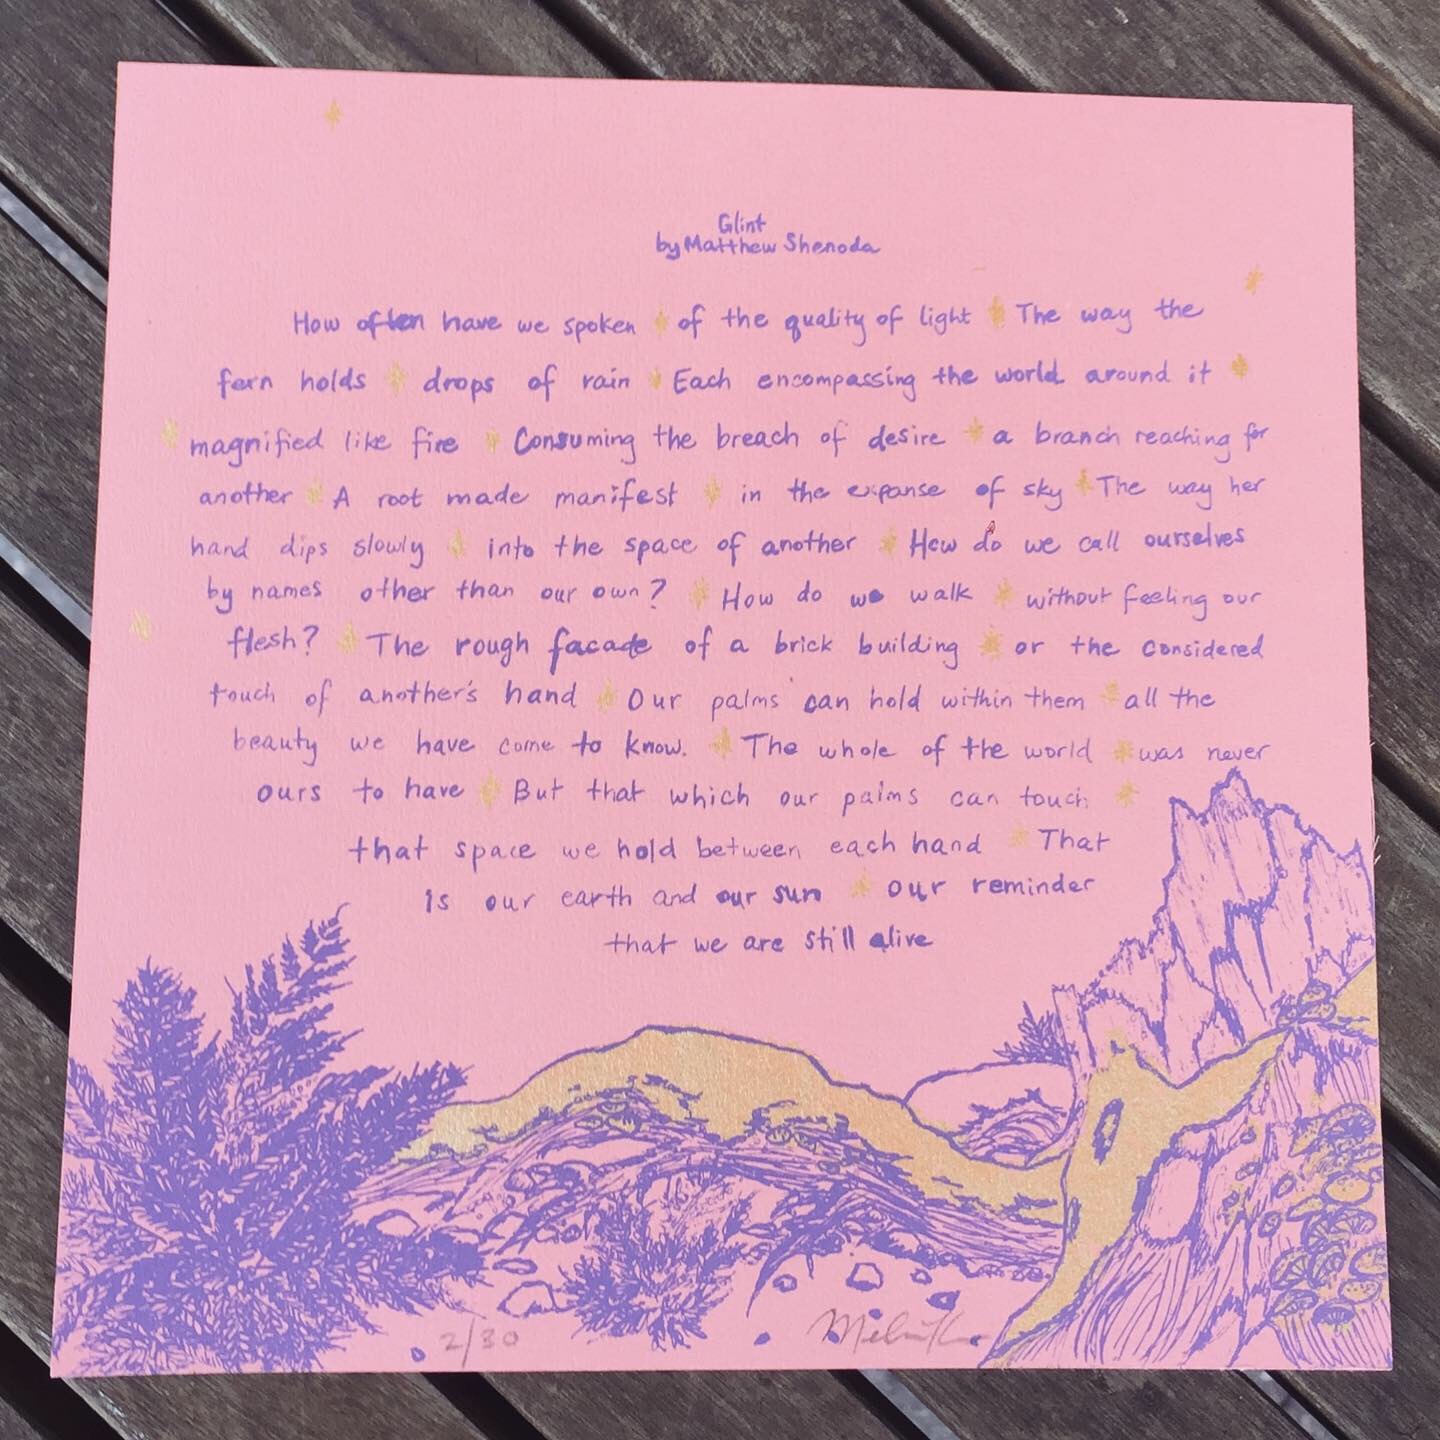 Glint
by Matthew Shenoda
How often have we spoken * of the quality of light * The way the
fern holds * drops of rain * Each encompassing the world around it *
* magnified like fire * Consuming the breach of desire * a branch reaching for
another * A root made manifest * in the expanse of sky * The way her
hand dips slowly * into the space of another * How do we call ourselves
by names other than our own? * How do we walk * without feeling our
flesh? * The rough facade of a brick building * or the considered
touch of another's hand * Our palms can hold within them * all the
beauty we have come to know. * The whole of the world * was never
ours to have * But that which our palms can touch *
that space we hold between each hand * That
is our earth and our sun * our reminder
that we are still alive
2/30